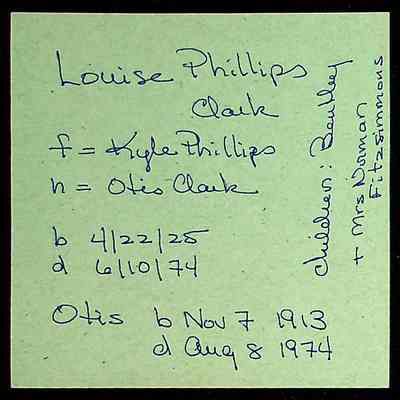 Louise Phillips
Clark
f = Kyle Phillips
h = Otis Clark
b 4/22/25
d 6/10/74
Otis b Nov 7 1913
d Aug 8 1974
children: Bentley
+ Mrs Norman
Fitzsimmons